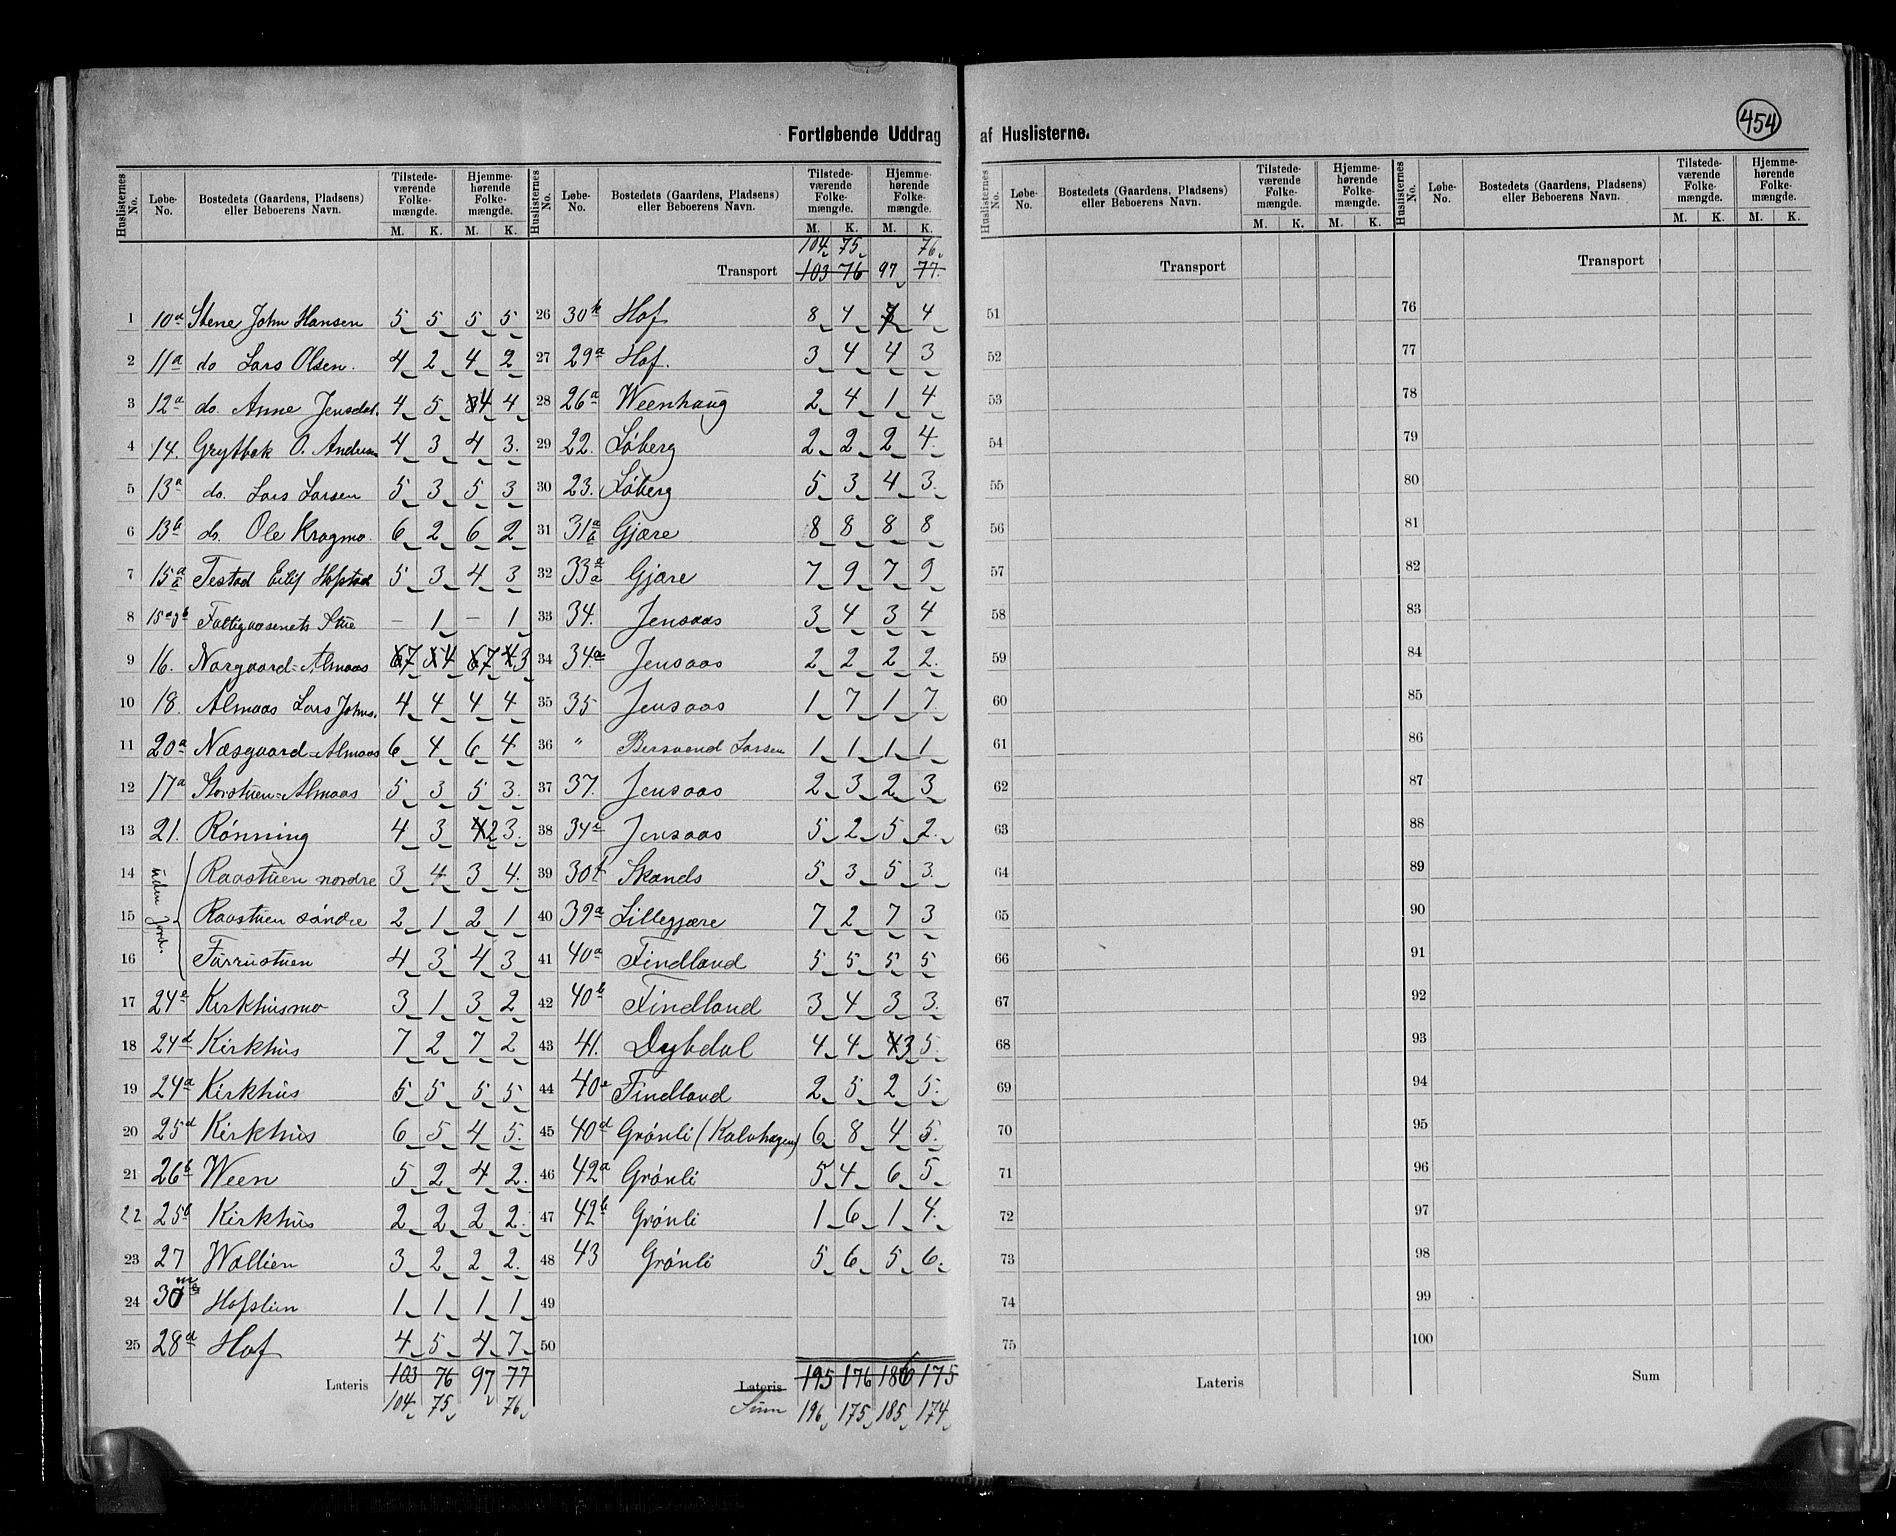 454
Fortløbende Uddrag af Huslisterne.
Huslisternes No. | Løbe-No. | Bostedets (Gaardens, Pladsens) eller Beboerens Navn. | Tilstedeværende Folkemængde. M. K. | Hjemmehørende Folkemængde. M. K.
1 | 10a | Stene John Hansen | 5 | 5 | 5 | 5
2 | 11a | do Lars Olsen. | 4 | 2 | 4 | 2
3 | 12a | do. Anne Jensdat. | 4 | 5 | 4 | 4
4 | 14. | Grytbak O. Andersen | 4 | 3 | 4 | 3.
5 | 13a | do. Lars Larsen | 5 | 3 | 5 | 3
6 | 13b | do. Ole Kragmo. | 6 | 2 | 6 | 2
7 | 15a | Testad Eilif Hofstad | 5 | 3 | 4 | 3
8 | 15a | Fattigvæsenets Stue | – | 1 | – | 1
9 | 16. | Norgaard-Almaas | 7 | 4 | 7 | 3
10 | 18. | Almaas Lars Johns. | 4 | 4 | 4 | 4
11 | 20a | Næsgaard-Almaas | 6 | 4 | 6 | 4
12 | 17a | Storstuen-Almaas | 5 | 3 | 5 | 3.
13 | 21. | Rønning | 4 | 3 | 2 | 3.
uden Jord.
14 | Raastuen nordre | 3 | 4 | 3 | 4.
15 | Raastuen søndre | 2 | 1 | 2 | 1
16 | Furrustuen | 4 | 3 | 4 | 3
17 | 24e | Kirkhusmo | 3 | 1 | 3 | 2
18 | 24d | Kirkhus | 7 | 2 | 7 | 2
19 | 24a | Kirkhus | 5 | 5 | 5 | 5
20 | 25d | Kirkhus | 6 | 5 | 4 | 5.
21 | 26b | Ween | 5 | 2 | 4 | 2.
22 | 25b | Kirkhus | 2 | 2 | 2 | 2.
23 | 27 | Wollien | 3 | 2 | 2 | 2.
24 | 30 | Hofslien | 1 | 1 | 1 | 1
25 | 28d | Hof | 4 | 5 | 4 | 7
Lateris | 103 | 76 | 97 | 77
104 | 75 | 76
Huslisternes No. | Løbe-No. | Bostedets (Gaardens, Pladsens) eller Beboerens Navn. | Tilstedeværende Folkemængde. M. K. | Hjemmehørende Folkemængde. M. K.
104 | 75 | 76
Transport | 103 | 76 | 97 | 77.
26 | 30k | Hof | 8 | 4 | 7 | 4
27 | 29a | Hof. | 3 | 4 | 4 | 3
28 | 26a | Weenhaug | 2 | 4 | 1 | 4
29 | 22. | Løberg | 2 | 2 | 2 | 4.
30 | 23. | Løberg | 5 | 3 | 4 | 3.
31 | 31a | Gjære | 8 | 8 | 8 | 8
32 | 33a | Gjære | 7 | 9 | 7 | 9
33 | 34. | Jensaas | 3 | 4 | 3 | 4
34 | 34a | Jensaas | 2 | 2 | 2 | 2.
35 | 35 | Jensaas | 1 | 7 | 1 | 7
36 | " | Bersvend Larsen | 1 | 1 | 1 | 1
37 | 37. | Jensaas | 2 | 3 | 2 | 3
38 | 34c | Jensaas | 5 | 2 | 5 | 2.
39 | 30f | Skands | 5 | 3 | 5 | 3.
40 | 39a | Lillegjære | 7 | 2 | 7 | 3
41 | 40a | Findland | 5 | 5 | 5 | 5
42 | 40b | Findland | 3 | 4 | 3 | 3.
43 | 41. | Dybdal | 4 | 4 | 3 | 5.
44 | 40e | Findland | 2 | 5 | 2 | 5.
45 | 40d | Grønli (Kalvhagen) | 6 | 8 | 4 | 5.
46 | 42a | Grønli | 5 | 4 | 6 | 5
47 | 42b | Grønli | 1 | 6 | 1 | 4.
48 | 43 | Grønli | 5 | 6 | 5 | 6.
49
50
Lateris | 195 | 176 | 186 | 175
Sum | 196 | 175 | 185 | 174
Huslisternes No. | Løbe-No. | Bostedets (Gaardens, Pladsens) eller Beboerens Navn. | Tilstedeværende Folkemængde. M. K. | Hjemmehørende Folkemængde. M. K.
Transport
51
52
53
54
55
56
57
58
59
60
61
62
63
64
65
66
67
68
69
70
71
72
73
74
75
Lateris
Huslisternes No. | Løbe-No. | Bostedets (Gaardens, Pladsens) eller Beboerens Navn. | Tilstedeværende Folkemængde. M. K. | Hjemmehørende Folkemængde. M. K.
Transport
76
77
78
79
80
81
82
83
84
85
86
87
88
89
90
91
92
93
94
95
96
97
98
99
100
Sum